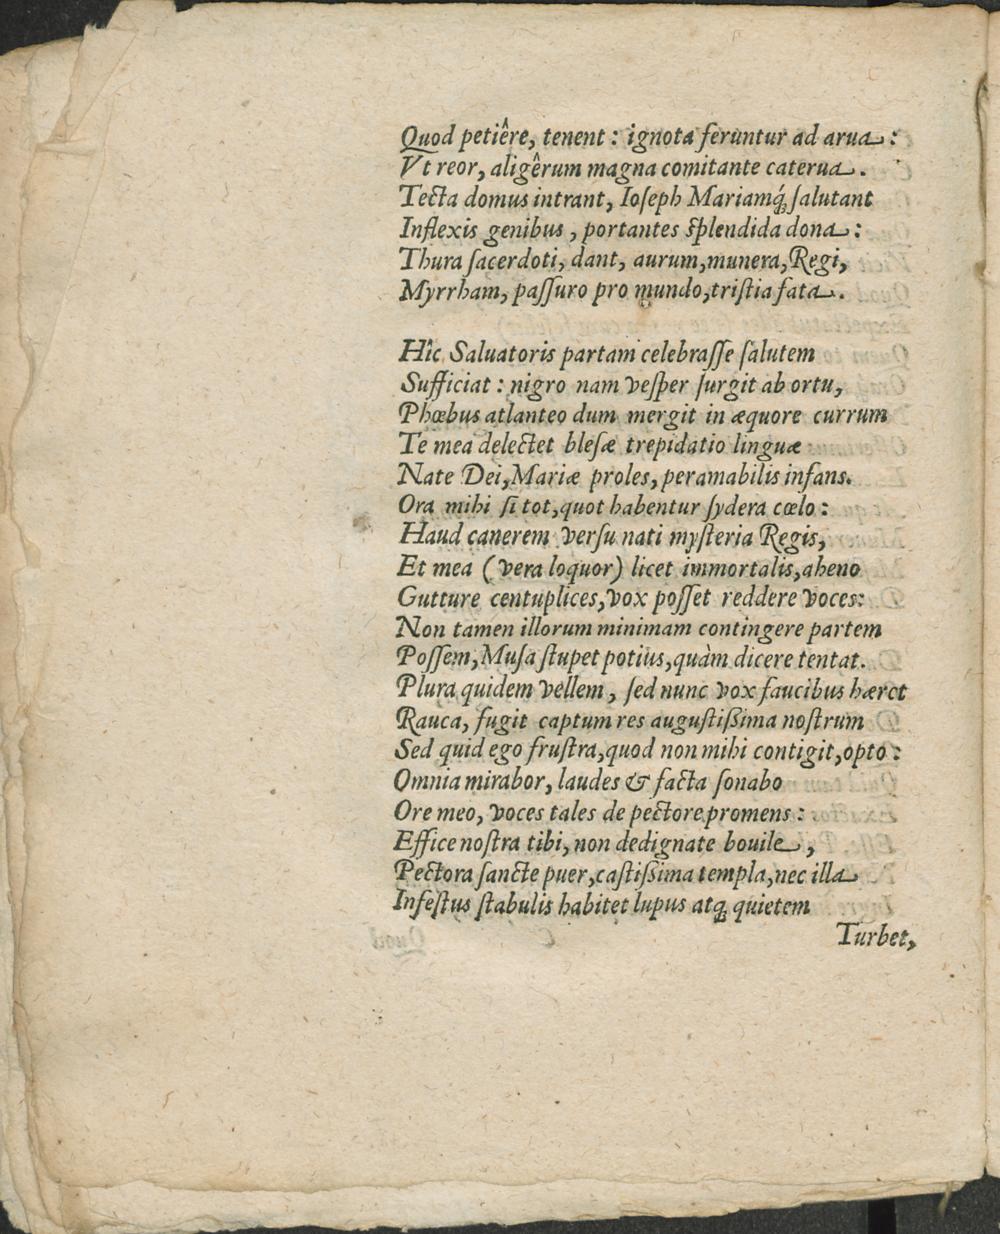 Quod petiêre, tenent : ignota feruntur ad arua :
Vt reor, aligêrum magna comitante caterua .
Tecta domus intrant, Ioſeph Mariamq́; ſalutant
Inflexis genibus , portantes ſplendida dona :
Thura ſacerdoti, dant, aurum, munera, Regi,
Myrrham, paſſuro pro mundo, triſtia fata .

Hîc Saluatoris partam celebraſſe ſalutem
Sufficiat : nigro nam veſper ſurgit ab ortu,
Phœbus atlanteo dum mergit in æquore currum
Te mea delectet bleſæ trepidatio linguæ
Nate Dei, Mariæ proles, peramabilis infans.
Ora mihi ſi tot, quot habentur ſydera cœlo :
Haud canerem verſu nati myſteria Regis,
Et mea (vera loquor) licet immortalis, aheno
Gutture centuplices, vox poſſet reddere voces:
Non tamen illorum minimam contingere partem
Poſſem, Muſa ſtupet potius, quàm dicere tentat.
Plura quidem vellem , ſed nunc vox faucibus hæret
Rauca, fugit captum res auguſtiſsima noſtrum
Sed quid ego fruſtra, quod non mihi contigit, opto :
Omnia mirabor, laudes & facta ſonabo
Ore meo, voces tales de pectore promens :
Effice noſtra tibi, non dedignate bouile ,
Pectora ſancte puer, caſtiſsima templa, nec illa
Infeſtus ſtabulis habitet lupus atq; quietem
Turbet,